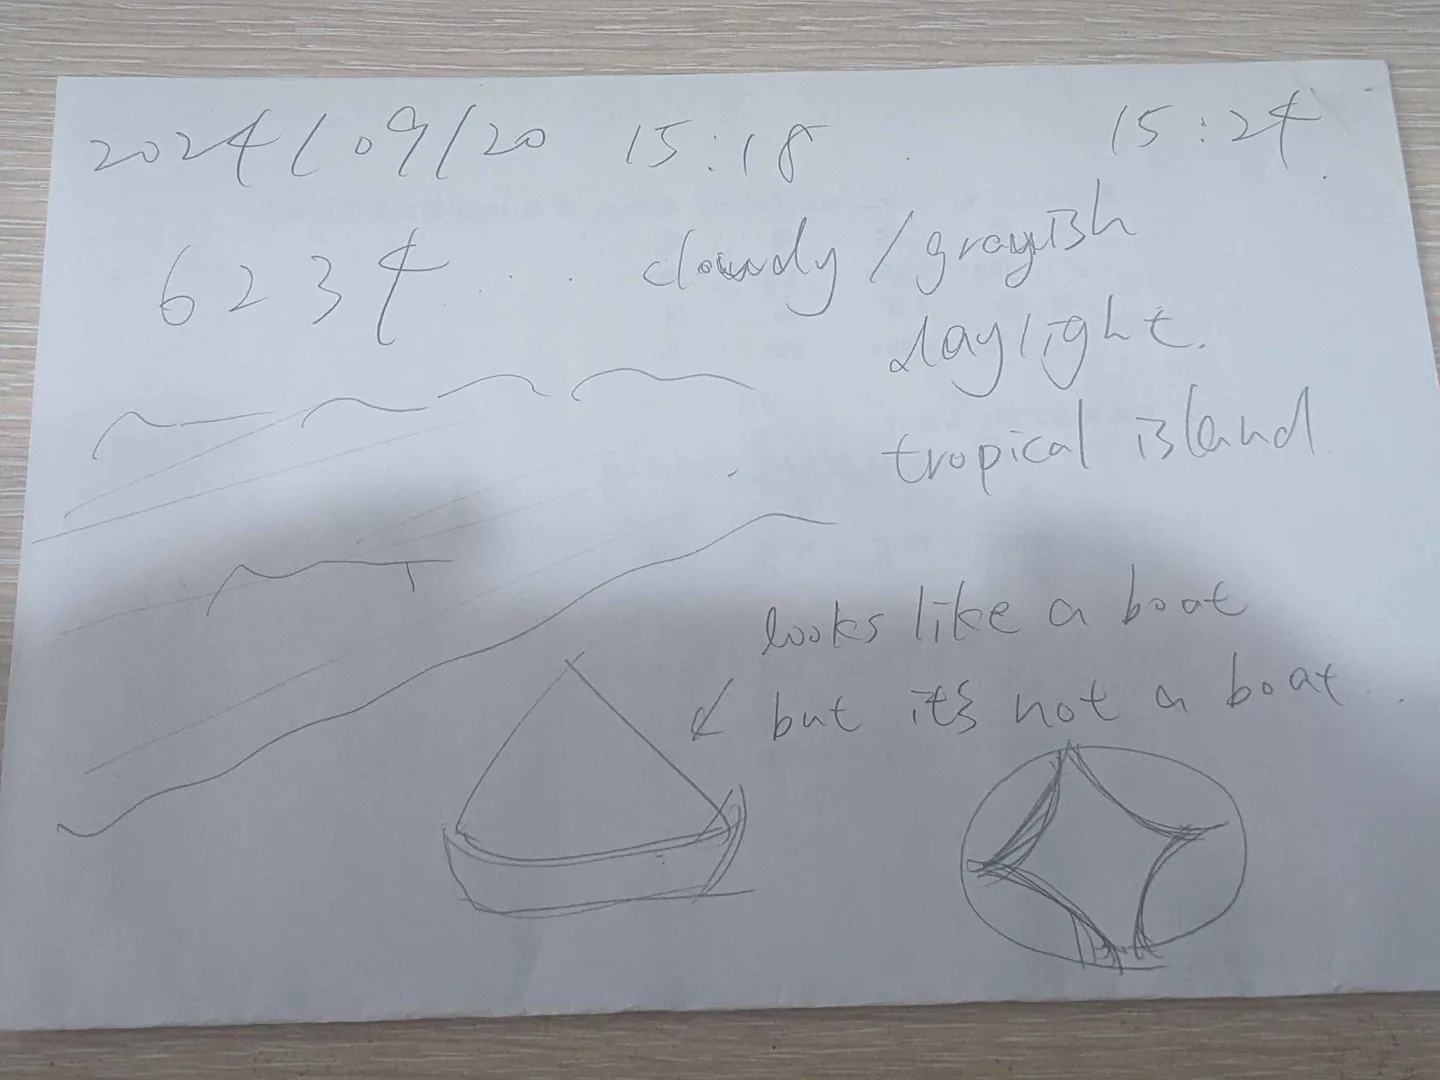 2024/09/20 15:18 15:24
6234 cloudy/grayish
daylight.
tropical island
looks like a boat
but it's not a boat.